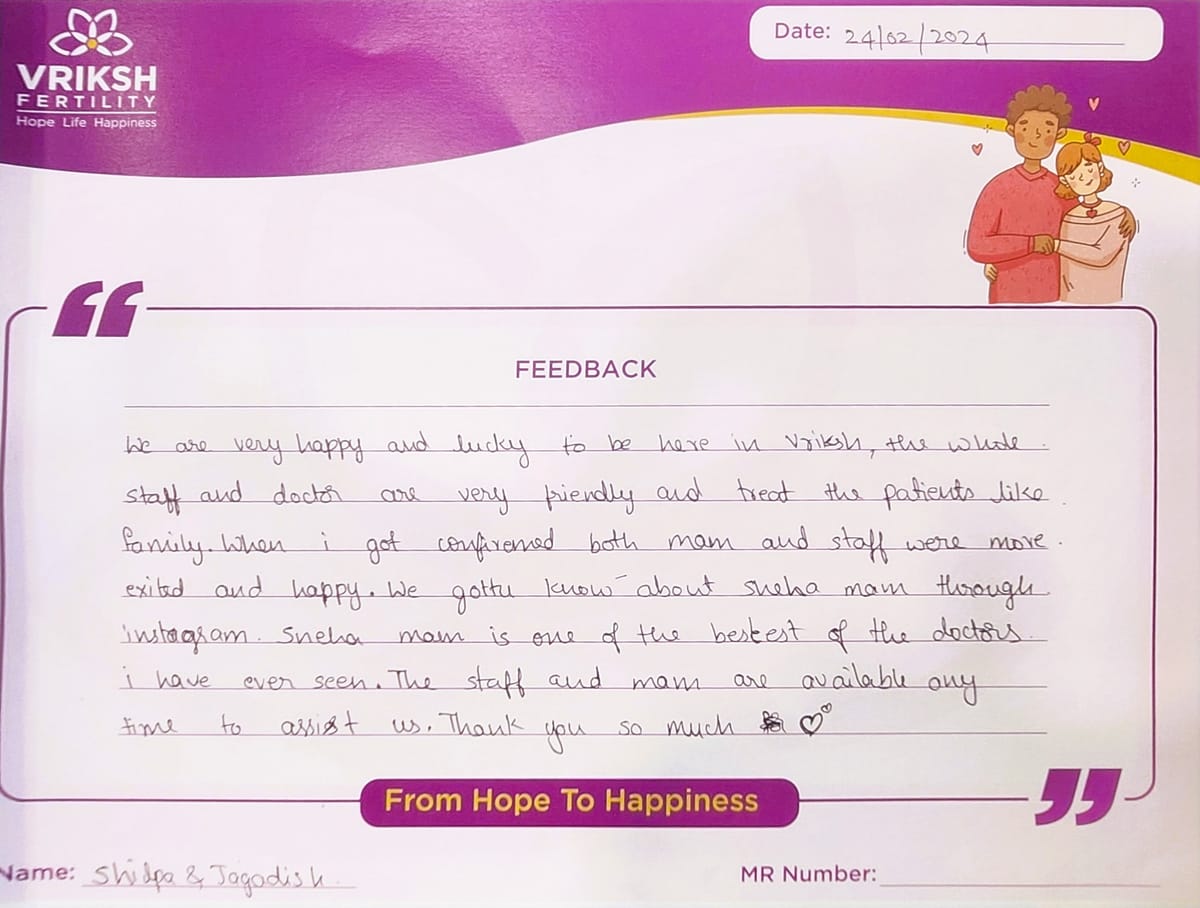 VRIKSH
FERTILITY
Hope Life Happiness
Date: 24/02/2024
FEEDBACK
We are very happy and lucky to be here in Vriksh, the whole
staff and doctor are very friendly and treat the patients like
family. When i got confiremed both mam and staff were more
exited and happy. We gottu know about sneha mam through
instagram. Sneha mam is one of the bestest of the doctors
i have ever seen. The staff and mam are available any
time to assist us. Thank you so much
From Hope To Happiness
Name: Shilpa & Jagadish
MR Number: